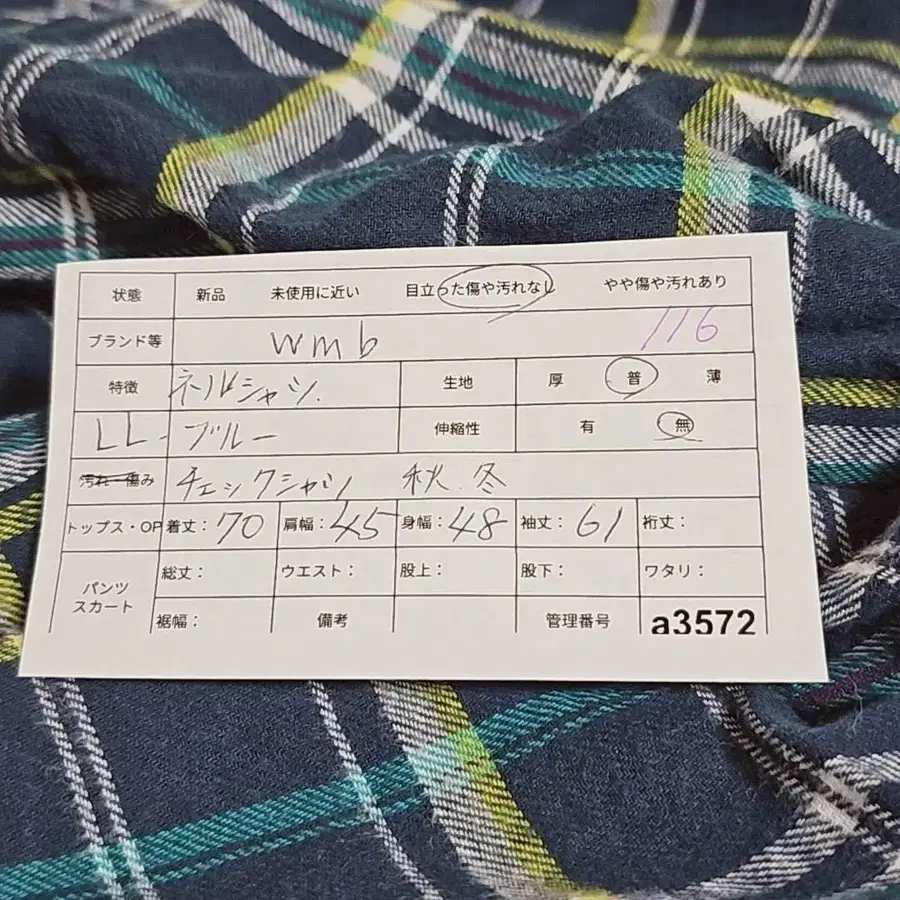 状態 新品 未使用に近い 目立った傷や汚れなし やや傷や汚れあり
ブランド等 wmb 116
特徴 ネルシャツ. 生地 厚 普 薄
LL. ブルー 伸縮性 有 無
汚れ・傷み チェックシャツ 秋.冬
トップス・OP 着丈：70 肩幅：45 身幅：48 袖丈：61 裄丈：
パンツ スカート 総丈： ウエスト： 股上： 股下： ワタリ：
裾幅： 備考 管理番号 a3572